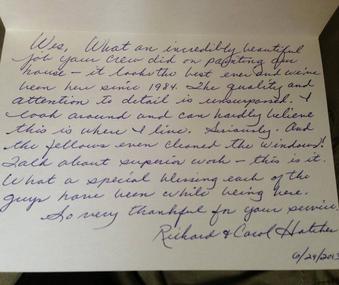 Wes, What an incredibly beautiful
job your crew did on painting our
house - it looks the best ever and we've
been here since 1984. The quality and
attention to detail is unsurpassed. I
look around and can hardly believe
this is where I live. Seriously. And
the fellows even cleaned the windows!
Talk about superior work - this is it.
What a special blessing each of the
guys have been while being here.
So very thankful for your service
Richard & Carol Hatcher
6/24/2013